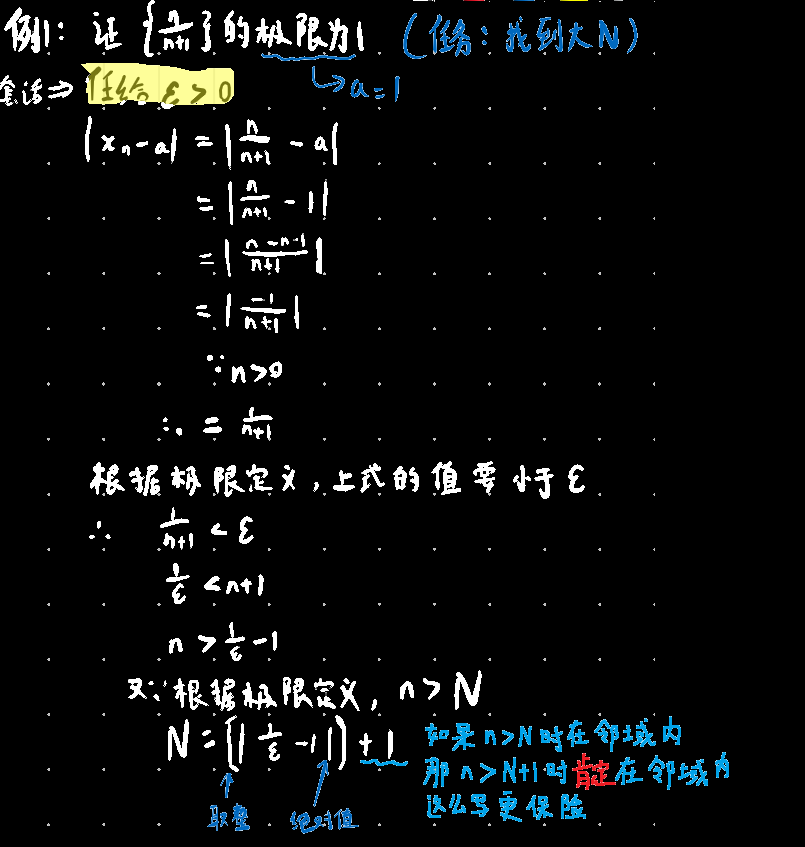 例1: 证 {n/(n+1)} 的极限为1 (任务: 找到大N)
→ a=1
套话⇒ 任给 ε>0
|xₙ-a| = |n/(n+1) - a|
= |n/(n+1) - 1|
= |(n-n-1)/(n+1)|
= |-1/(n+1)|
∵ n>0
∴ = 1/(n+1)
根据极限定义, 上式的值要小于 ε
∴ 1/(n+1) < ε
1/ε < n+1
n > 1/ε -1
又∵ 根据极限定义, n > N
N = [|1/ε -1|] + 1
取整 绝对值
如果 n>N 时在邻域内
那 n>N+1 时肯定在邻域内
这么写更保险